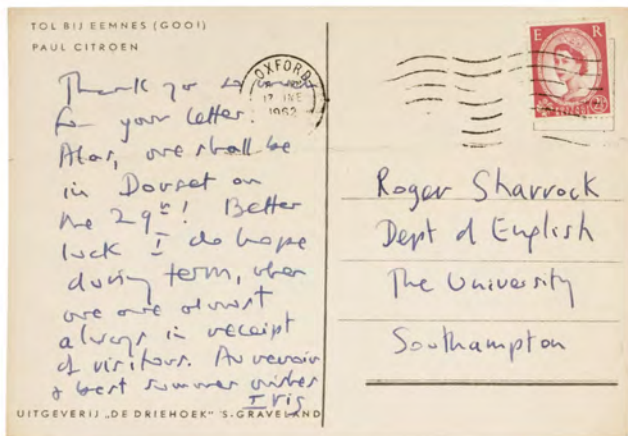 TOL BIJ EEMNES (GOOI)
PAUL CITROEN
Thank you so much
for your letter!
Alas, we shall be
in Dorset on
the 29th! Better
luck I do hope
during term, when
we are almost
always in receipt
of visitors. Au revoir
& best summer wishes
Iris
UITGEVERIJ „DE DRIEHOEK" 'S-GRAVELAND
OXFORD
1962
E R
Roger Sharrock
Dept of English
The University
Southampton